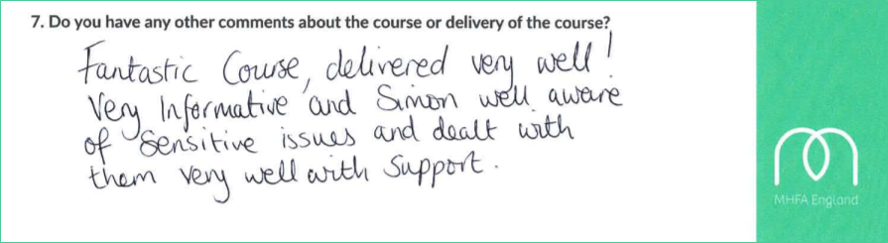 7. Do you have any other comments about the course or delivery of the course?
Fantastic Course, delivered very well!
Very Informative and Simon well aware
of sensitive issues and dealt with
them very well with support.
MHFA England